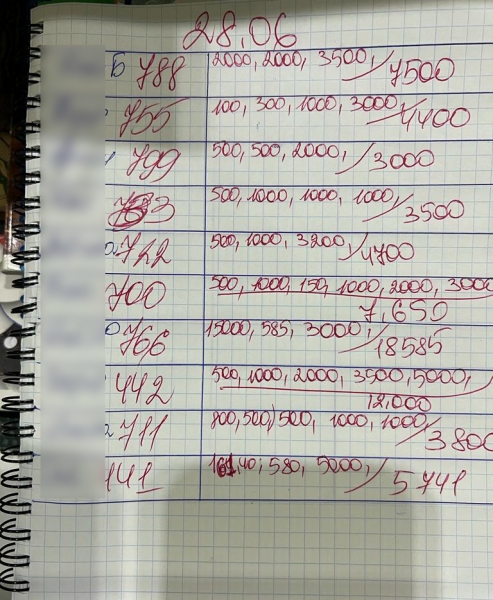 28.06
Б 788 2000, 2000, 3500, / 7500
755 100, 300, 1000, 3000 / 4400
799 500, 500, 2000, / 3000
500, 1000, 1000, 1000 / 3500
722 500, 1000, 3200, / 4700
700 500, 1000, 150, 1000, 2000, 3000
7.650
766 15000, 585, 3000, / 18585
442 500, 1000, 2000, 3500, 5000, /
12.000
711 800, 500, 500, 1000, 1000 / 3800
141 161, 40, 580, 5000, / 5741